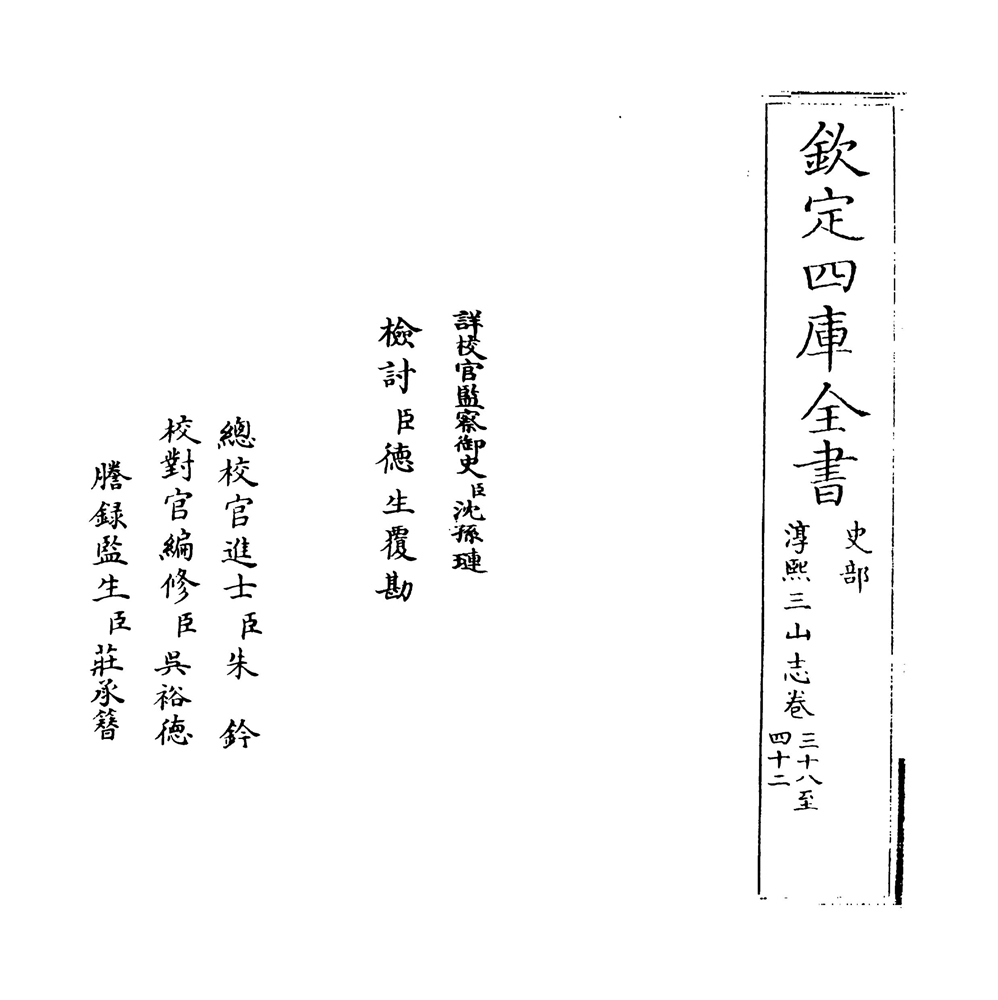 欽定四庫全書
史部
淳熙三山志卷三十八至
四十二
詳校官監察御史臣沈孫璉
檢討臣德生覆勘
總校官進士臣朱鈐
校對官編修臣吳裕德
謄録監生臣莊承簪